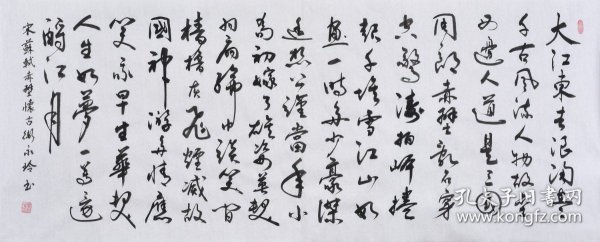 大江東去浪淘盡
千古風流人物故壘
西邊人道是三國
周郎赤壁亂石穿
空驚濤拍岸捲
起千堆雪江山如
畫一時多少豪傑
遙想公瑾當年小
喬初嫁了雄姿英發
羽扇綸巾談笑間
檣櫓灰飛煙滅故
國神游多情應
笑我早生華髮
人生如夢一尊還
酹江月
宋蘇軾赤壁懷古永玲书
孔夫子旧书网
www.kongfz.com